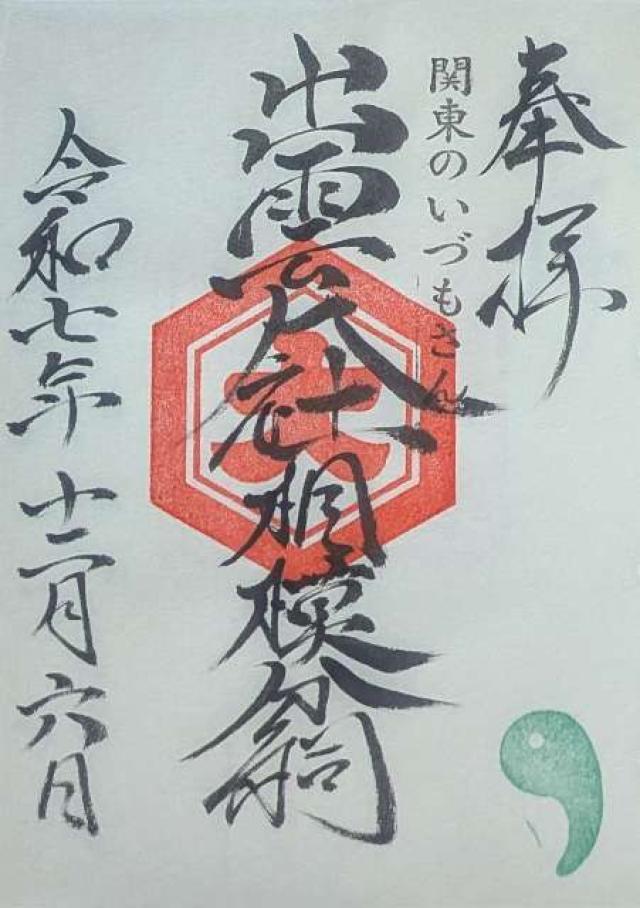 奉拝
関東のいづもさん
出雲大社相模分祠
大
令和七年十二月六日